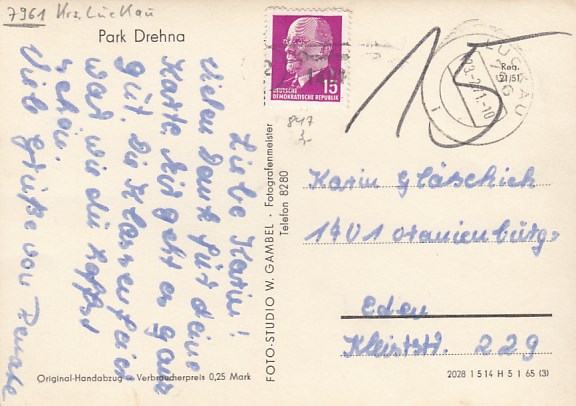 7961 Krs. Luckau
Park Drehna
Liebe Karin!
Vielen Dank für deine
Karte. Mir geht es ganz
gut. Die Klassenfeier
war wie du hoffst
schön.
Viele Grüße von Renate
15
DEUTSCHE
DEMOKRATISCHE REPUBLIK
15
LUCKAU
847
Karin Gläschich
1401 Oranienburg
Eden
Kleiststr. 229
FOTO-STUDIO W. GAMBEL · Fotografenmeister
Telefon 8280
Reg.
21/51
Original-Handabzug – Verbraucherpreis 0,25 Mark
2028 1 5 14 H 5 1 65 (3)